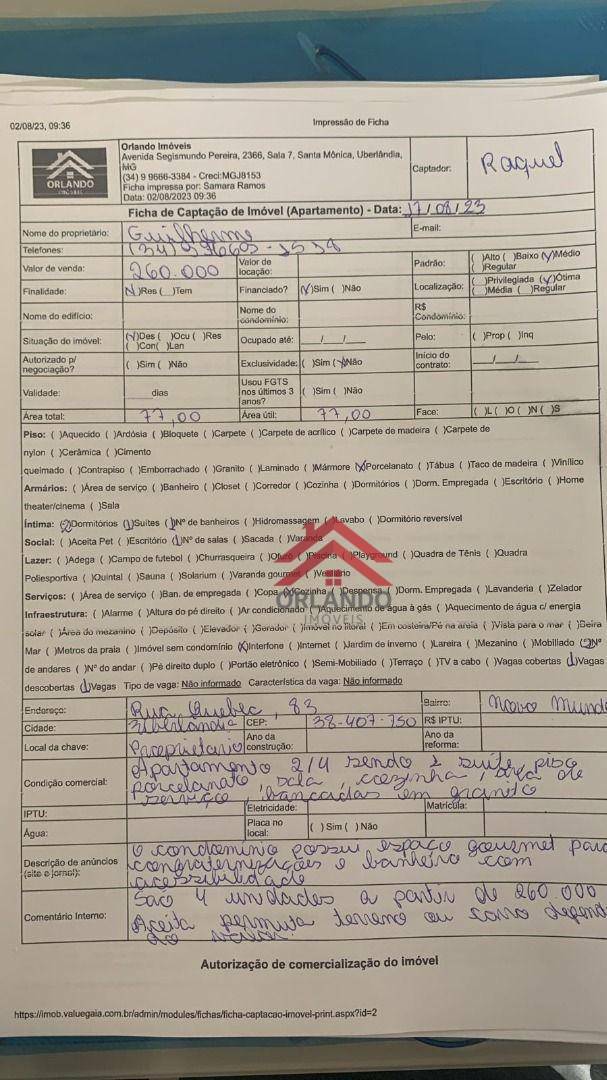 02/08/23, 09:36 Impressão de Ficha
ORLANDO
IMÓVEIS
Orlando Imóveis
Avenida Segismundo Pereira, 2366, Sala 7, Santa Mônica, Uberlândia,
MG
(34) 9 9666-3384 - Creci:MGJ8153
Ficha impressa por: Samara Ramos
Data: 02/08/2023 09:36
Captador: Raquel
Ficha de Captação de Imóvel (Apartamento) - Data: 17/08/23
Nome do proprietário: Guilherme E-mail:
Telefones: (34)
Valor de venda: 260.000 Valor de locação: Padrão: ( )Alto ( )Baixo (x)Médio ( )Regular
Finalidade: (x)Res ( )Tem Financiado? (x)Sim ( )Não Localização: ( )Privilegiada (x)Ótima ( )Média ( )Regular
Nome do edifício: Nome do condomínio: R$ Condomínio:
Situação do imóvel: (x)Des ( )Ocu ( )Res ( )Con( )Lan Ocupado até: / / Pelo: ( )Prop ( )Inq
Autorizado p/ negociação? ( )Sim ( )Não Exclusividade: ( )Sim (x)Não Início do contrato: / /
Validade: dias Usou FGTS nos últimos 3 anos? ( )Sim ( )Não
Área total: 77,00 Área útil: 77,00 Face: ( )L ( )O ( )N ( )S
Piso: ( )Aquecido ( )Ardósia ( )Bloquete ( )Carpete ( )Carpete de acrílico ( )Carpete de madeira ( )Carpete de
nylon ( )Cerâmica ( )Cimento
queimado ( )Contrapiso ( )Emborrachado ( )Granito ( )Laminado ( )Mármore (x)Porcelanato ( )Tábua ( )Taco de madeira ( )Vinílico
Armários: ( )Área de serviço ( )Banheiro ( )Closet ( )Corredor ( )Cozinha ( )Dormitórios ( )Dorm. Empregada ( )Escritório ( )Home
theater/cinema ( )Sala
Íntima: (2)Dormitórios (1)Suítes (1)Nº de banheiros ( )Hidromassagem ( )Lavabo ( )Dormitório reversível
Social: ( )Aceita Pet ( )Escritório (1)Nº de salas ( )Sacada ( )Varanda
Lazer: ( )Adega ( )Campo de futebol ( )Churrasqueira ( )Ofurô ( )Piscina ( )Playground ( )Quadra de Tênis ( )Quadra
Poliesportiva ( )Quintal ( )Sauna ( )Solarium ( )Varanda gourmet ( )Vestiário
Serviços: ( )Área de serviço ( )Ban. de empregada ( )Copa (x)Cozinha ( )Despensa ( )Dorm. Empregada ( )Lavanderia ( )Zelador
Infraestrutura: ( )Alarme ( )Altura do pé direito ( )Ar condicionado ( )Aquecimento de água à gás ( )Aquecimento de água c/ energia
solar ( )Área do mezanino ( )Depósito ( )Elevador ( )Gerador ( )Imóvel no litoral ( )Em costeira/Pé na areia ( )Vista para o mar ( )Beira
Mar ( )Metros da praia ( )Imóvel sem condomínio (x)Interfone ( )Internet ( )Jardim de inverno ( )Lareira ( )Mezanino ( )Mobiliado (2)Nº
de andares ( )Nº do andar ( )Pé direito duplo ( )Portão eletrônico ( )Semi-Mobiliado ( )Terraço ( )TV a cabo ( )Vagas cobertas (1)Vagas
descobertas (1)Vagas Tipo de vaga: Não informado Característica da vaga: Não informado
ORLANDO
IMÓVEIS
Endereço: Rua Quebec, 83 Bairro: Novo Mundo
Cidade: Uberlândia CEP: 38-407-750 R$ IPTU:
Local da chave: Proprietario Ano da construção: Ano da reforma:
Condição comercial: Apartamento 2/4 sendo 1 suíte, piso
porcelanato, sala, cozinha, área de
serviço, bancadas em granito
IPTU: Eletricidade: Matrícula:
Água: Placa no local: ( ) Sim ( ) Não
Descrição de anúncios (site e jornal): O condominio possui espaço gourmet para
congraternizações e banheiro com
acessibilidade
Comentário Interno: São 4 unidades a partir de 260.000
Aceita permuta terreno ou carro depend
do valor.
Autorização de comercialização do imóvel
https://imob.valuegaia.com.br/admin/modules/fichas/ficha-captacao-imovel-print.aspx?id=2